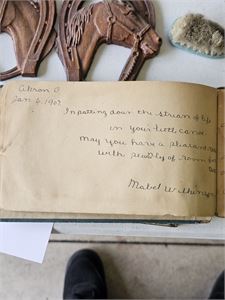 Akron O
Jan 6. 1902
In patting down the stream of life
in your little canoe
May you have a pleasant
with of room for
Mabel Wilkinson